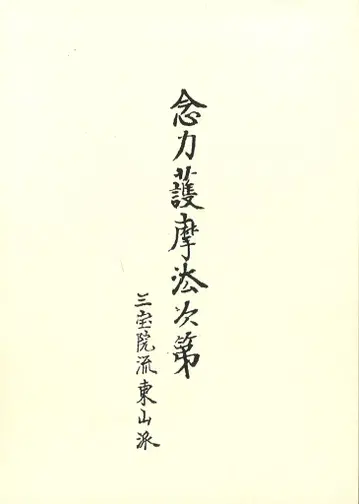 念力護摩法次第
三宝院流東山派